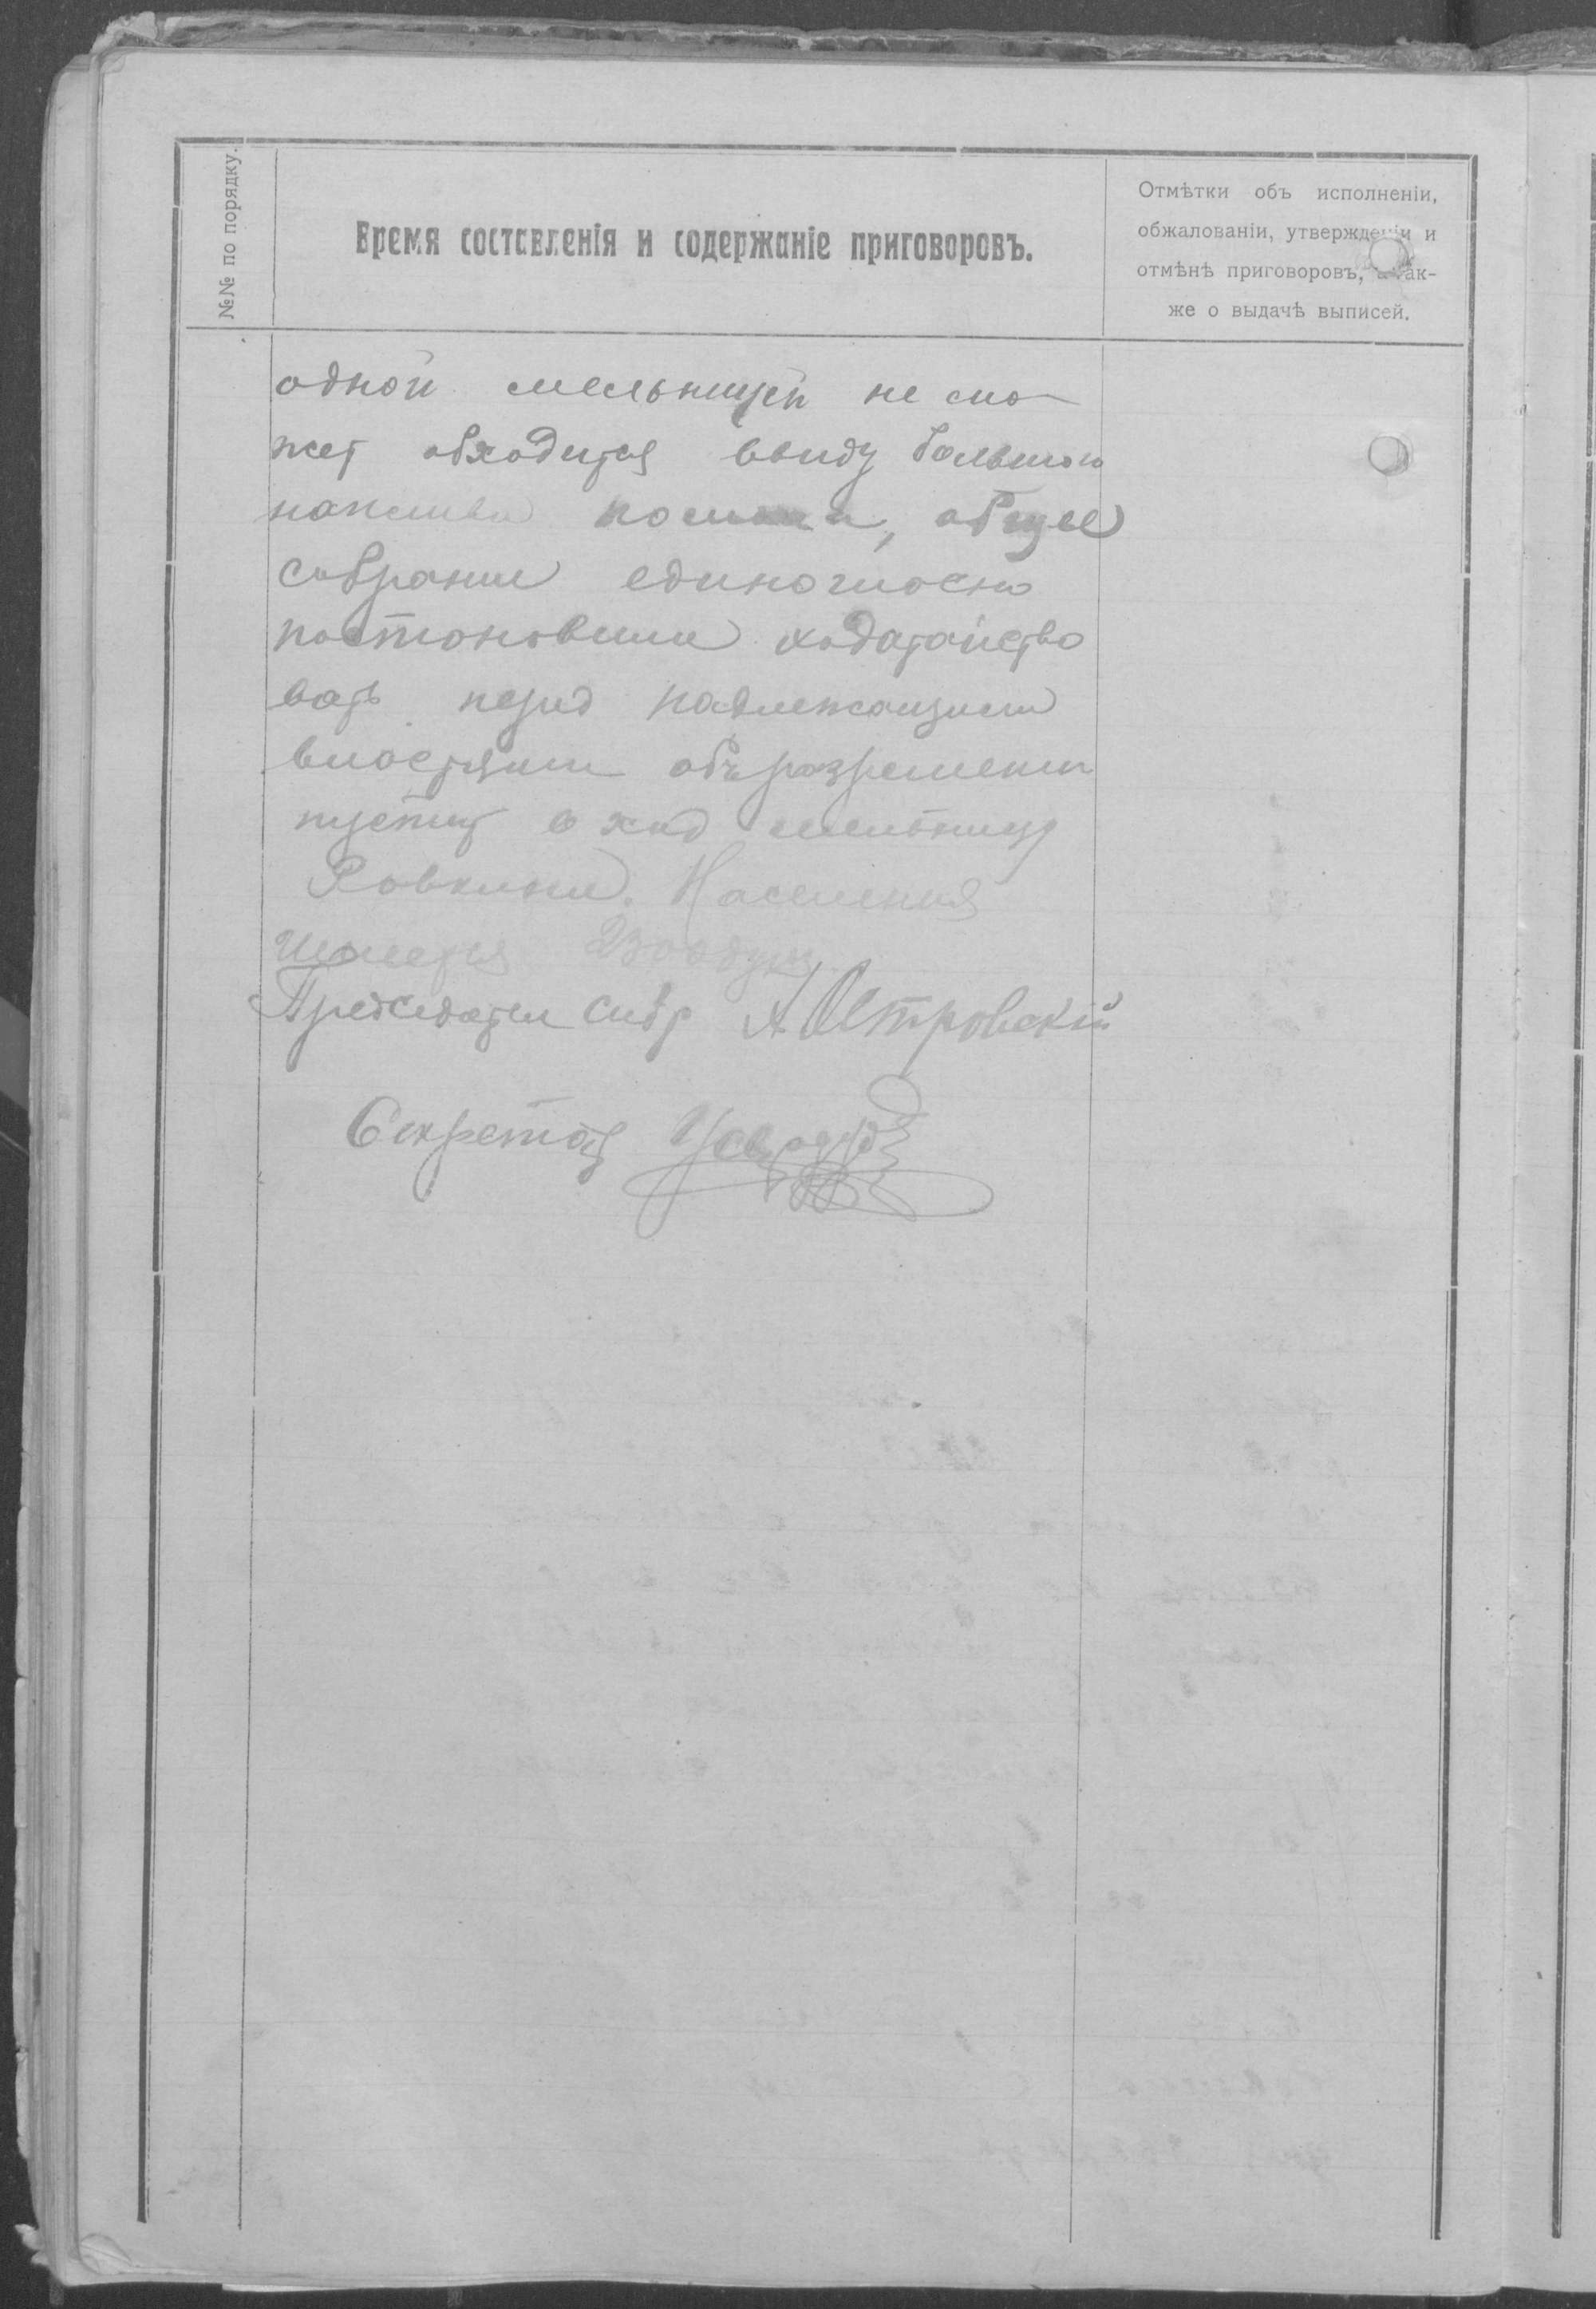 №№ по порядку.
Время составленія и содержаніе приговоровъ.
Отмѣтки объ исполненіи,
обжалованіи, утвержденіи и
отмѣнѣ приговоровъ, а так-
же о выдачѣ выписей.
одной мельницей не мо-
жет обходится ввиду большого
наплыва помола, общее
собрание единогласно
постановили ходатайство
вать перед надлежащими
властями объ разрешении
пустить в ход мельницу
Ровкина. Населения
имеется
Председатель собр А Островскій
Секретарь